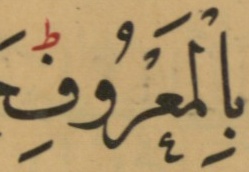 بِالْمَعْرُوفِ ۖ ط